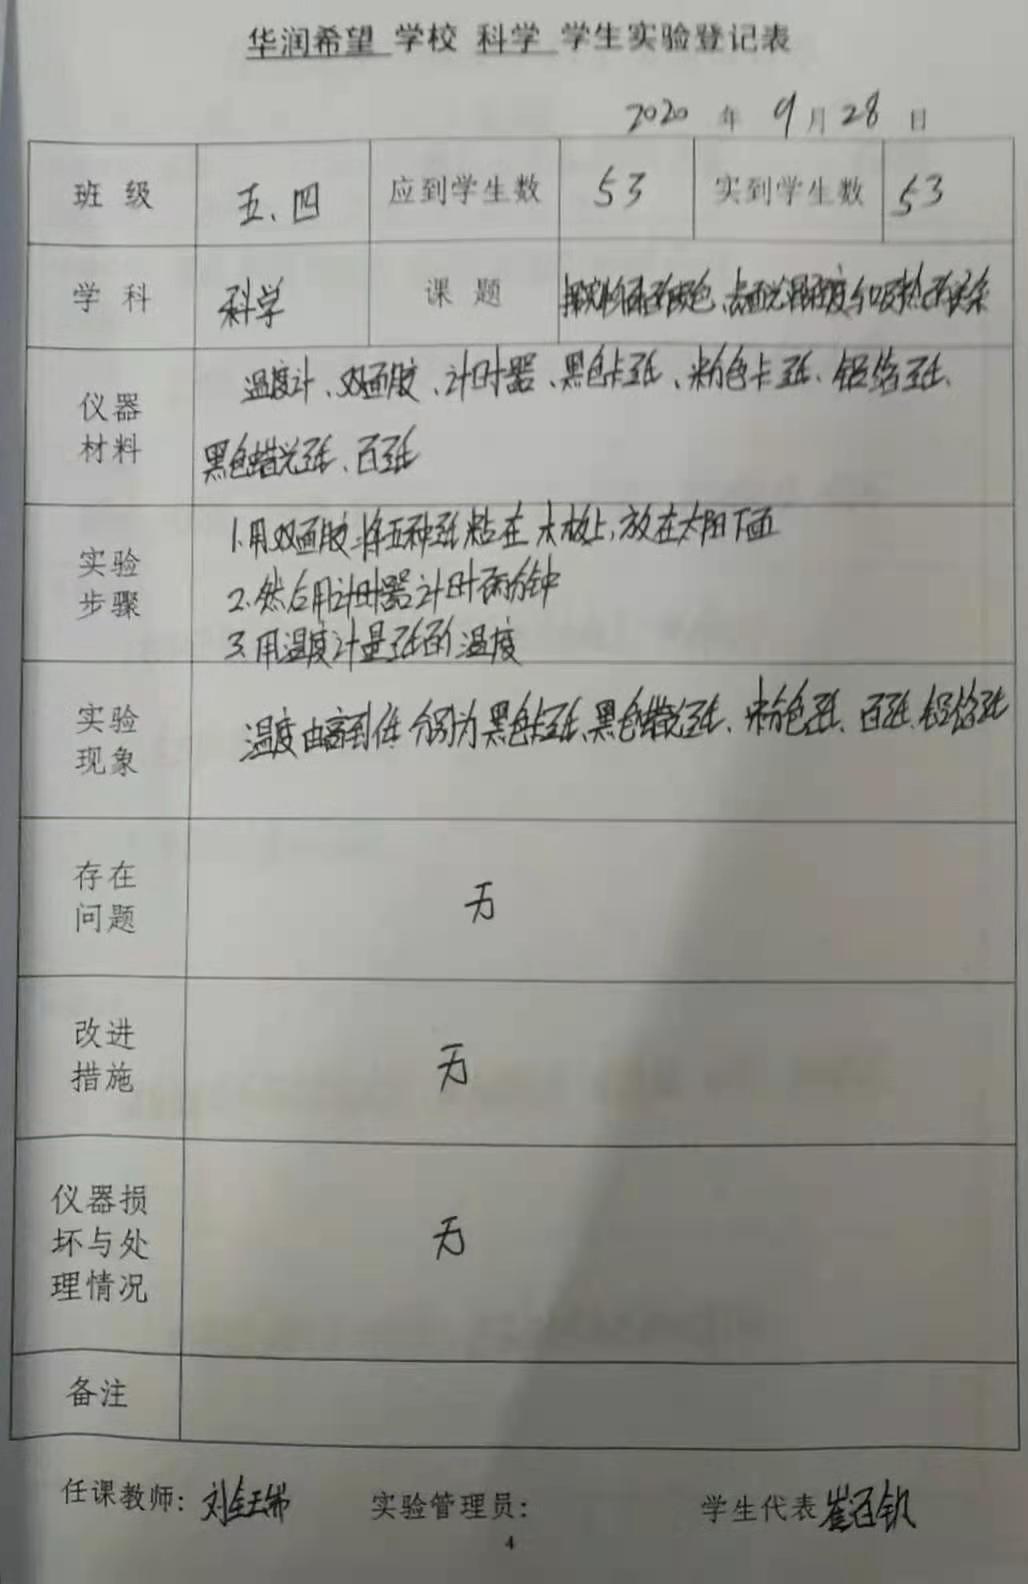 华润希望 学校 科学 学生实验登记表
2020 年 9 月 28 日
班 级 五、四 应到学生数 53 实到学生数 53
学 科 科学 课 题 探究物体的颜色、表面光滑程度和吸热的关系
仪器材料 温度计、双面胶、计时器、黑色卡纸、粉色卡纸、铝箔纸、
黑色蜡光纸、白纸
实验步骤 1.用双面胶将五种纸粘在木板上,放在太阳下面
2.然后用计时器计时 分钟
3.用温度计量纸的温度
实验现象 温度由高到低分别为黑色卡纸、黑色蜡光纸、粉色纸、白纸、铝箔纸
存在问题 无
改进措施 无
仪器损坏与处理情况 无
备注
任课教师: 刘 实验管理员: 学生代表 崔
4